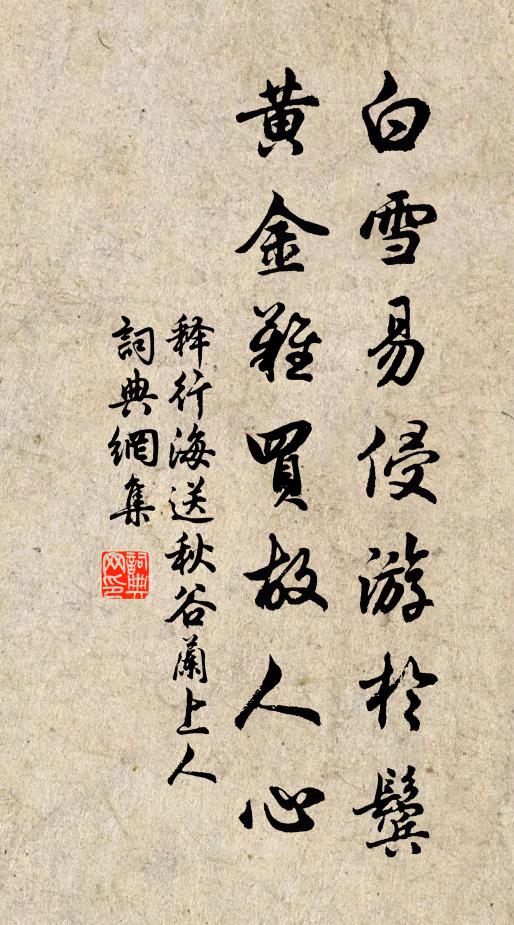 白雪易侵游於鬓
黄金難買故人心
释行海送秋谷蘭上人
詞典網集
詞典網印